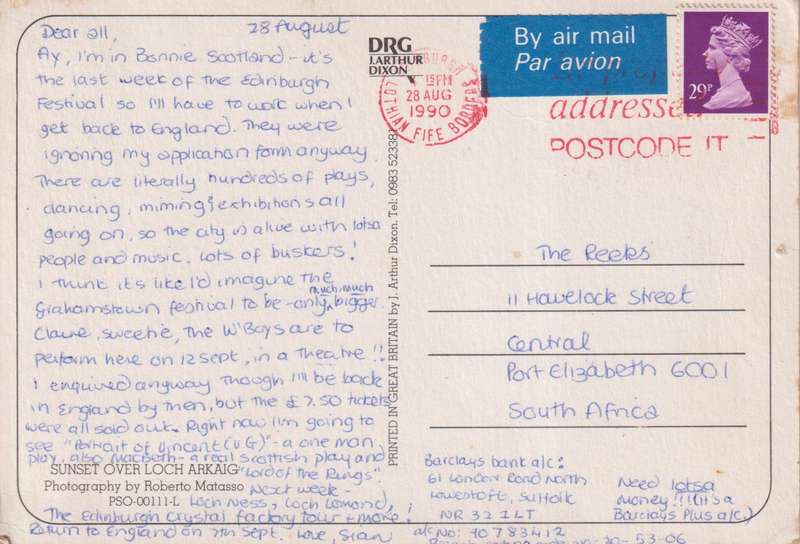 Dear all, 28 August
Ay, I'm in Bonnie Scotland - it's
the last week of the Edinburgh
Festival so I'll have to work when I
get back to England. They were
ignoring my application form anyway.
There are literally hundreds of plays,
dancing, miming & exhibitions all
going on, so the city is alive with lotsa
people and music, lots of buskers!
I think it's like I'd imagine the
Grahamstown festival to be - only much much bigger.
Claire, sweetie, the W'Boys are to
perform here on 12 Sept, in a Theatre!!
I enquired anyway though I'll be back
in England by then, but the £7.50 tickets
were all sold out. Right now I'm going to
see "Portrait of Vincent (V G)" - a one man
play, also Macbeth - a real Scottish play and
"Lord of the Rings".
Next week -
Loch Ness, Loch Lomond,
The Edinburgh Crystal factory tour + more!
Return to England on 7th Sept. Love, Sian
SUNSET OVER LOCH ARKAIG
Photography by Roberto Matasso
PSO-00111-L
DRG
J. ARTHUR
DIXON
PRINTED IN GREAT BRITAIN by J. Arthur Dixon. Tel: 0983 523381
By air mail
Par avion
29P
PM
28 AUG
1990
LOTHIAN FIFE BORDERS
addressed
POSTCODE IT
The Reeks
11 Havelock Street
Central
Port Elizabeth 6001
South Africa
Barclays bank a/c:
61 London Road North
Lowestoft, Suffolk
NR 32 1LT
a/c No: 70783412
20-53-06
Need lotsa
money!!! (It's a
Barclays Plus a/c)